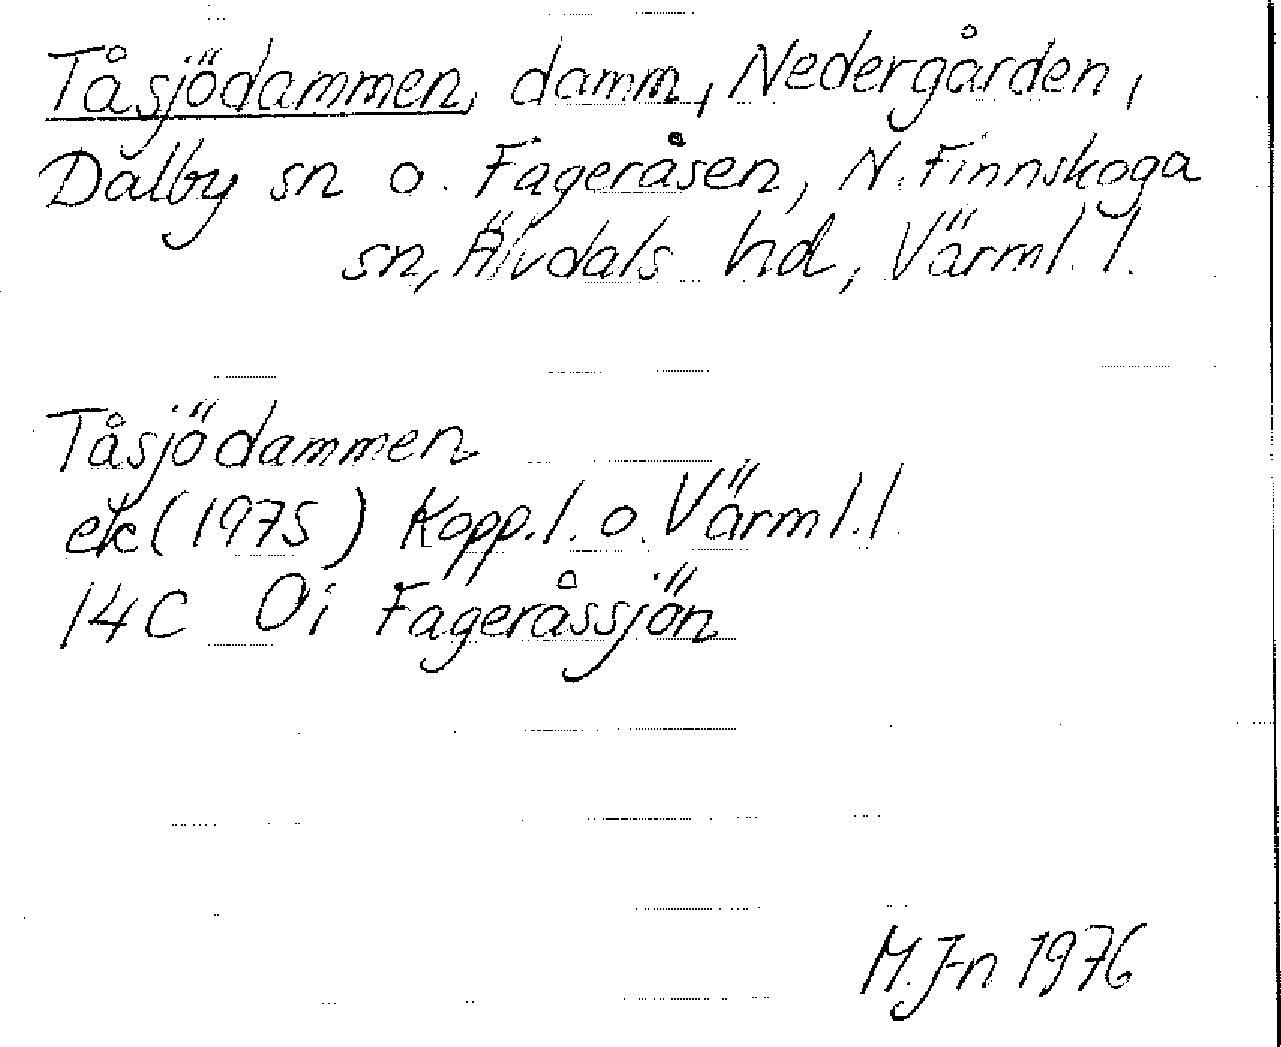 Tåsjödammen, damm, Nedergården,
Dalby sn o. Fageråsen, N. Finnskoga
sn, Älvdals hd, Värml. l.
Tåsjödammen
ek (1975) Kopp. l. o. Värml. l.
14C 0i Fageråssjön
M. J-n 1976